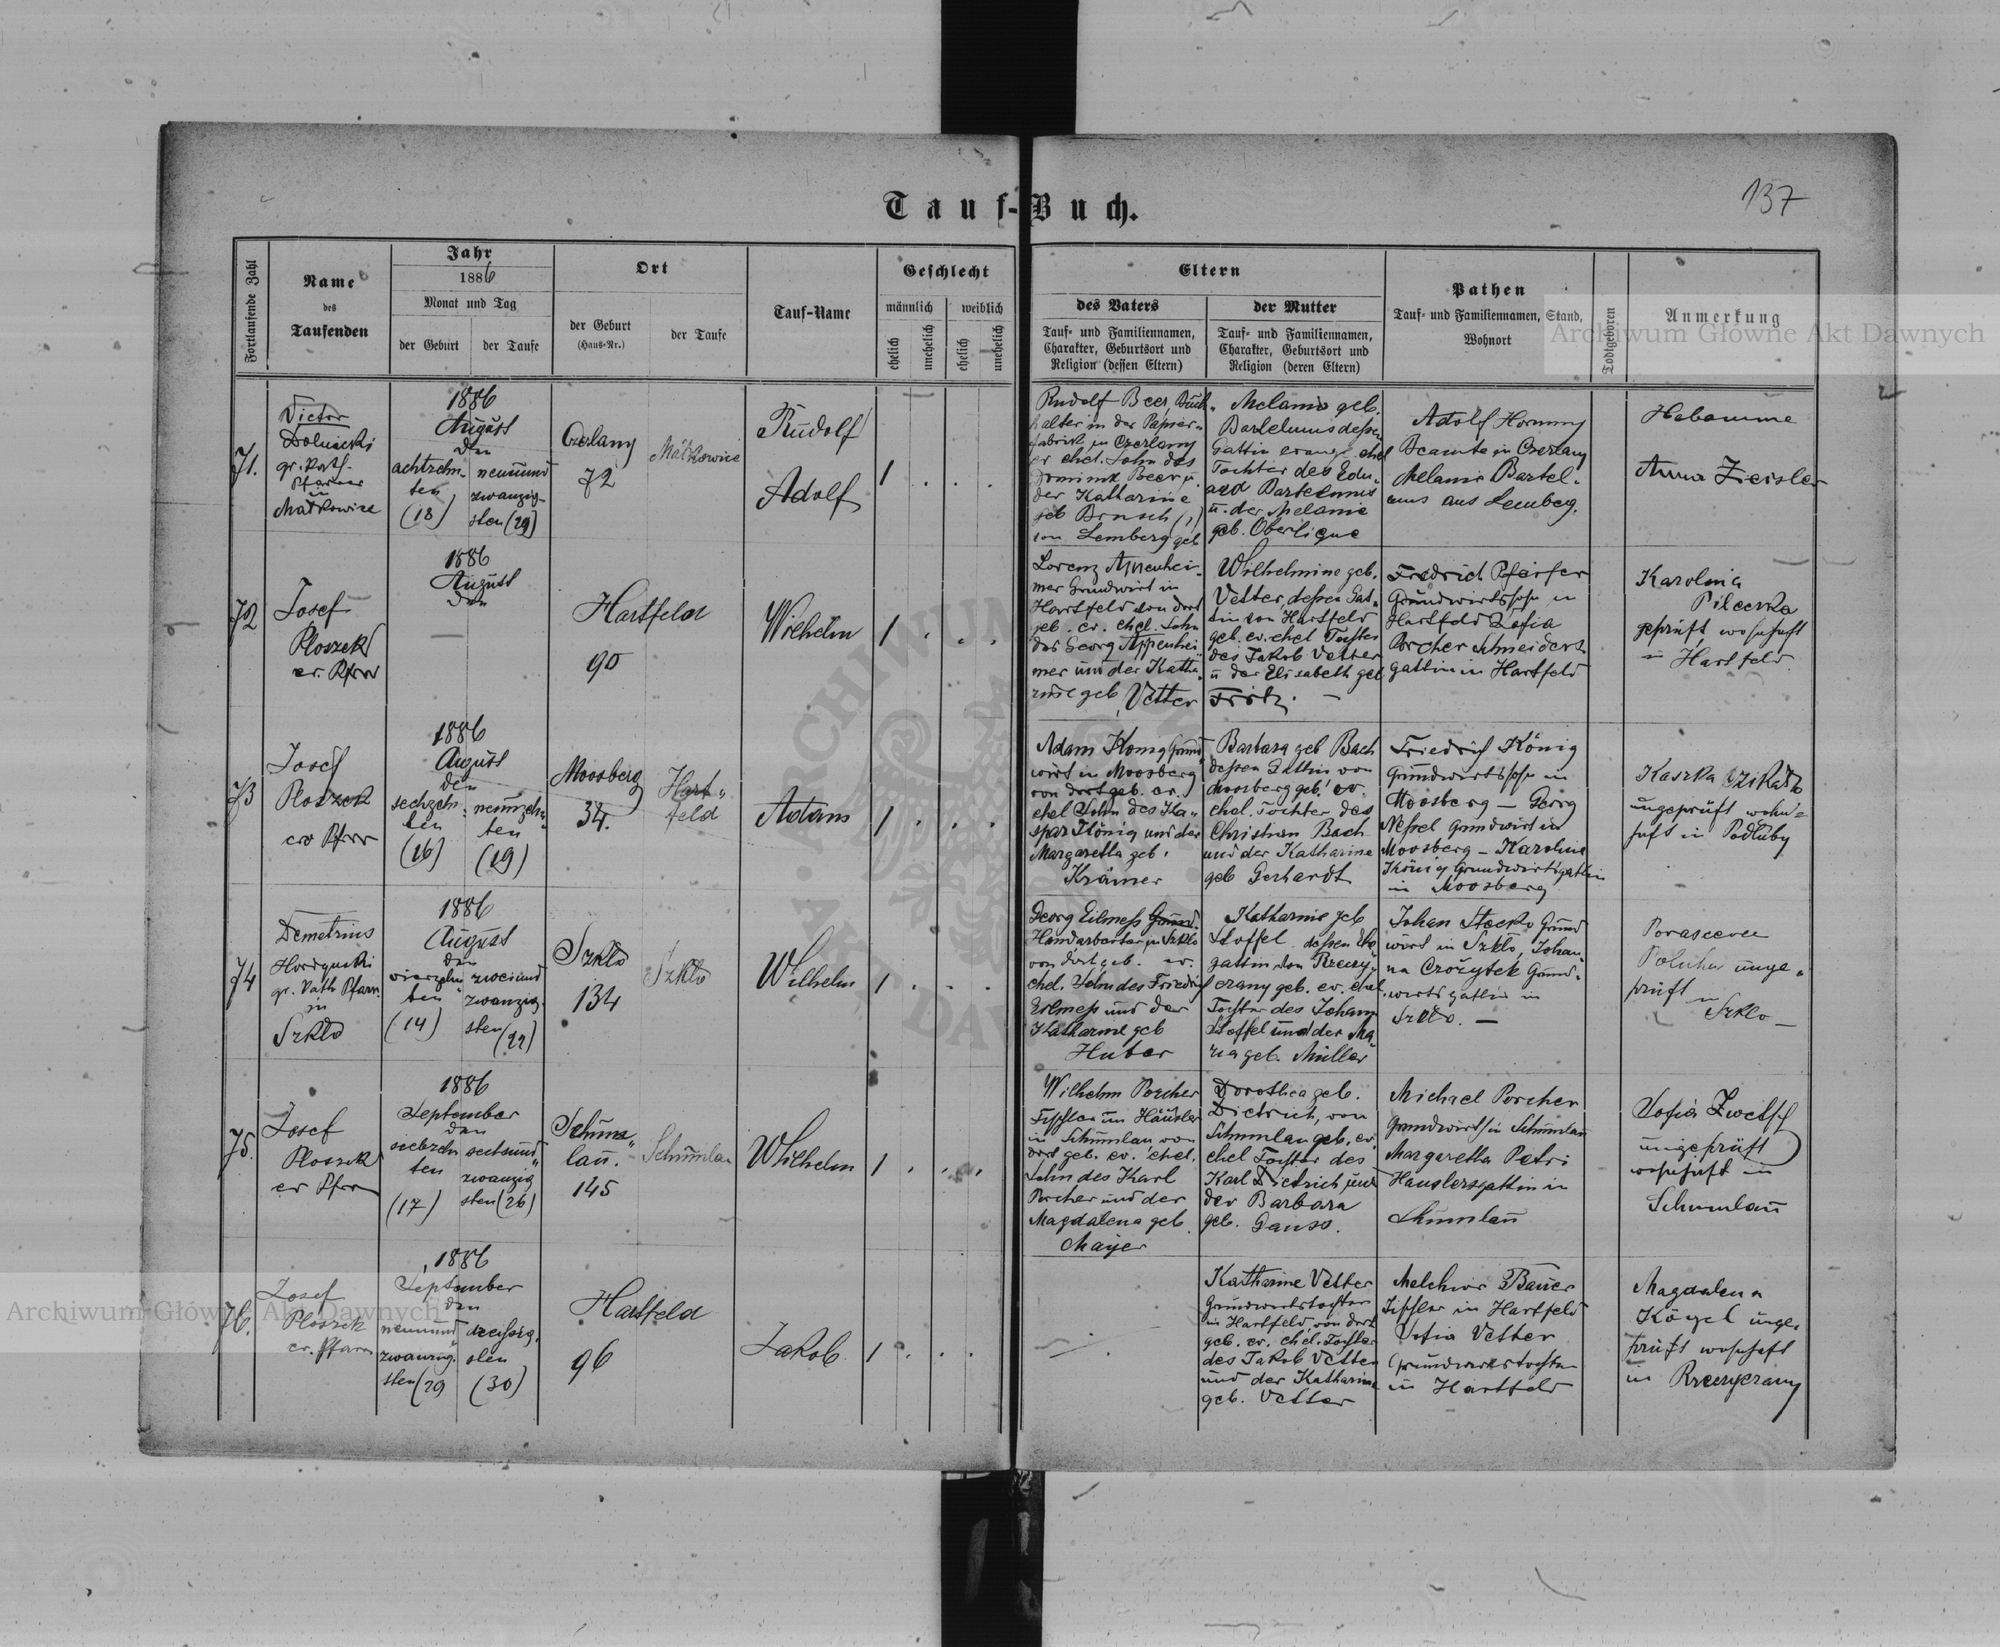 137
Tauf-Buch.
Fortlaufende Zahl
Name
des
Taufenden
Jahr
1886
Monat und Tag
der Geburt
der Taufe
Ort
der Geburt
(Haus-Nr.)
der Taufe
Tauf-Name
Geschlecht
männlich
weiblich
ehelich
unehelich
ehelich
unehelich
Eltern
des Vaters
Tauf- und Familiennamen,
Charakter, Geburtsort und
Religion (dessen Eltern)
der Mutter
Tauf- und Familiennamen,
Charakter, Geburtsort und
Religion (deren Eltern)
Pathen
Tauf- und Familiennamen, Stand,
Wohnort
Todtgeboren
Anmerkung
Archiwum Główne Akt Dawnych
71.
Victor
Dolnicki
gr. kath.
Pfarrer
in
Małkowice
1886
August
den
achtzehn-
ten
(18)
neunund
zwanzig-
sten (29)
Czerlany
72
Małkowice
Rudolf
Adolf
1
Rudolf Beer, Buch-
halter in der Papier-
fabrik in Czerlany
ev ehel. Sohn des
Dominik Beer u.
der Katharine
geb Brusch
von Lemberg geb
Melanie geb.
Bartelmus dessen
Gattin evang ehel
Tochter des Edu-
ard Bartelmus
u. der Melanie
geb. Oberligue
Adolf Hornung
Beamte in Czerlany
Melanie Bartel-
mus aus Lemberg.
Hebamme
Anna Zeisler
72
Josef
Ploszek
ev. Pfrr
1886
August
den
Hartfeld
90
Wilhelm
1
Lorenz Appenhei-
mer Grundwirt in
Hartfeld von dort
geb. ev. ehel. Sohn
des Georg Appenhei-
mer und der Katha-
rine geb. Vetter
Wilhelmine geb.
Vetter, dessen Gat-
tin von Hartfeld
geb. ev. ehel Tochter
des Jakob Vetter
u der Elisabeth geb
Fritz.
Friedrich Pfeifer
Grundwirtssohn in
Hartfeld Zofia
Porcher Schneiders
gattin in Hartfeld
Karolina
Pilecka
geprüft wohnhaft
in Hartfeld
73
Josef
Ploszek
ev Pfrr
1886
August
den
sechzehn-
ten
(16)
neunzehn-
ten
(19)
Moosberg
34.
Hart-
feld
Adam
1
Adam König Grund
wirt in Moosberg
von dort geb. ev.
ehel Sohn des Ka-
spar König und der
Margaretha geb.
Krämer
Barbara geb Bach
dessen Gattin von
Moosberg geb. ev.
ehel. Tochter des
Christian Bach
und der Katharine
geb Gerhardt
Friedrich König
Grundwirtssohn in
Moosberg - Georg
Nessel Grundwirt in
Moosberg - Karoline
König Grundwirtsgattin
in Moosberg
Kaszka
ungeprüft wohn-
haft in Podłuby
74
Demetrius
gr. Kath Pfarr.
in
Szkło
1886
August
den
vierzehn
ten
(14)
zweiund
zwanzig-
sten (22)
Szkło
134
Szkło
Wilhelm
1
Georg Eilmess Grund.
Handarbeiter in Szkło
von dort geb. ev.
ehel. Sohn des Friedrich
Eilmess und der
Katharine geb
Huber
Katharine geb
Stoffel dessen Ehe
gattin von Rzeczy-
czany geb. ev. ehel.
Tochter des Johann
Stoffel und der Ma-
ria geb. Müller
Johan Stecko Grund
wirt in Szkło, Johan-
na Crozytek Grund-
wirts gattin in
Szkło. -
ungeprüft
in
Szkło -
75.
Josef
Ploszek
ev Pfrr
1886
September
den
siebzehn
ten
(17)
sechsund
zwanzig
sten (26)
Schum-
lau.
145
Schumlau
Wilhelm
1
Wilhelm Porcher
Tischler und Häusler
in Schumlau von
dort geb. ev. ehel.
Sohn des Karl
Porcher und der
Magdalena geb.
Mayer
Dorothea geb.
Dietrich, von
Schumlau geb. ev.
ehel Tochter des
Karl Dietrich und
der Barbara
geb. Ganso.
Michael Porcher
Grundwirt in Schumlau
Margaretha Petri
Hauslersgattin in
Schumlau
Sofia Zwetsch
ungeprüft
wohnhaft in
Schumlau
76.
Josef
Ploszek
ev. Pfarr
1886
September
den
neunund
zwanzig-
sten (29
dreissig-
sten
(30)
Hartfeld
96
Jakob
1
Katharine Vetter
Grundwirtstochter
in Hartfeld, von dort
geb. ev. ehel. Tochter
des Jakob Vetter
und der Katharina
geb. Vetter
Melchior Bauer
Tischler in Hartfeld
Sofia Vetter
Grundwirtstochter
in Hartfeld
Magdalena
Kögel unge-
prüft wohnhaft
in Rzeczyczany
Archiwum Główne Akt Dawnych